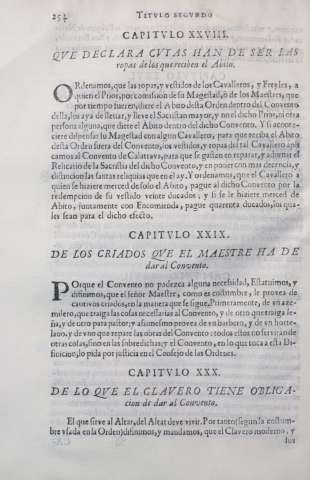 254 TITVLO SEGVNDO
CAPITVLO XXVIII.
QVE DECLARA CVYAS HAN DE SER LAS
ropas de los que reciben el Abito.
ORdenamos, que las ropas, y vestidos de los Cavalleros, y Freyles, a
quien el Prior, por comision de su Magestad, ò de los Maestres, que
por tiempo fueren, diere el Abito desta Orden dentro del Convento
della, los aya de llevar, y lleve el Sacristan mayor, y no el dicho Prior, ni otra
persona alguna, que diere el Abito dentro del dicho Convento. Y si aconte-
ciere dispensar su Magestad con algun Cavallero, para que reciba el Abito
desta Orden fuera del Convento, los vestidos, y ropas del tal Cavallero apli
camos al Convento de Calatrava, para que se gasten en reparar, y adornar el
Relicario de la Sacristia del dicho Convento, y en poner con mas decencia, y
distincion las santas reliquias que en el ay. Y ordenamos, que el Cavallero a
quien se hiziere merced de solo el Abito, pague al dicho Convento por la
redempcion de su vestido veinte ducados, y si se le hiziere merced de
Abito, juntamente con Encomienda, pague quarenta ducados, los qua-
les sean para el dicho efecto.
CAPITVLO XXIX.
DE LOS CRIADOS QVE EL MAESTRE HA DE
dar al Convento.
POrque el Convento no padezca alguna necesidad, Estatuimos, y
difinimos, que el señor Maestre, como es costumbre, le provea de
cautivos criados, en la manera que se sigue. Primeramente, de vn aze-
milero, que traiga las cosas necesarias al Convento, y de otro que traiga le-
ña, y de otro para pastor; y asimesmo provea de vn barbero, y de vn horte-
lano, y de vno que repare las obras del Convento: todos estos no sirvan de
otras cosas, sino en las sobredichas; y el Convento, en lo que toca a esta Di-
finicion, lo pida por justicia en el Consejo de las Ordenes.
CAPITVLO XXX.
DE LO QVE EL CLAVERO TIENE OBLIGA-
cion de dar al Convento.
El que sirve al Altar, del Altar deve vivir. Por tanto (segun la costum-
bre vsada en la Orden) difinimos, y mandamos, que el Clavero moderno, y